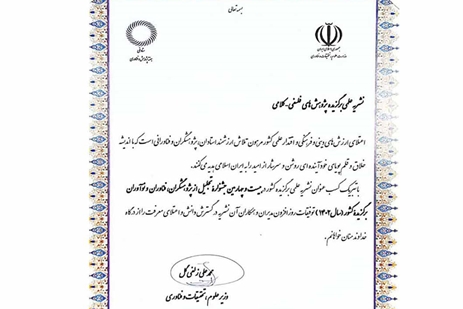 بسمه تعالی
جمهوری اسلامی ایران
وزارت علوم، تحقیقات و فناوری
نشریه علمی برگزیده پژوهش های فلسفی - کلامی
اعتلای ارزش های دینی و فرهنگی و اقتدار علمی کشور مرهون تلاش ارزشمند استادان، پژوهشگران و فناورانی است که با اندیشه
خلاق و قلم پویای خود آینده ای روشن و سرشار از امید را به ایران اسلامی هدیه می کنند.
با تبریک کسب عنوان نشریه علمی برگزیده کشور در بیست و چهارمین جشنواره تجلیل از پژوهشگران، فناوران و نوآوران
برگزیده کشور (سال ۱۴۰۲) توفیقات روزافزون مدیران و همکاران آن نشریه در گسترش دانش و اعتلای معرفت را از درگاه
خداوند منان خواهانم.
محمدعلی زلفی گل
وزیر علوم، تحقیقات و فناوری